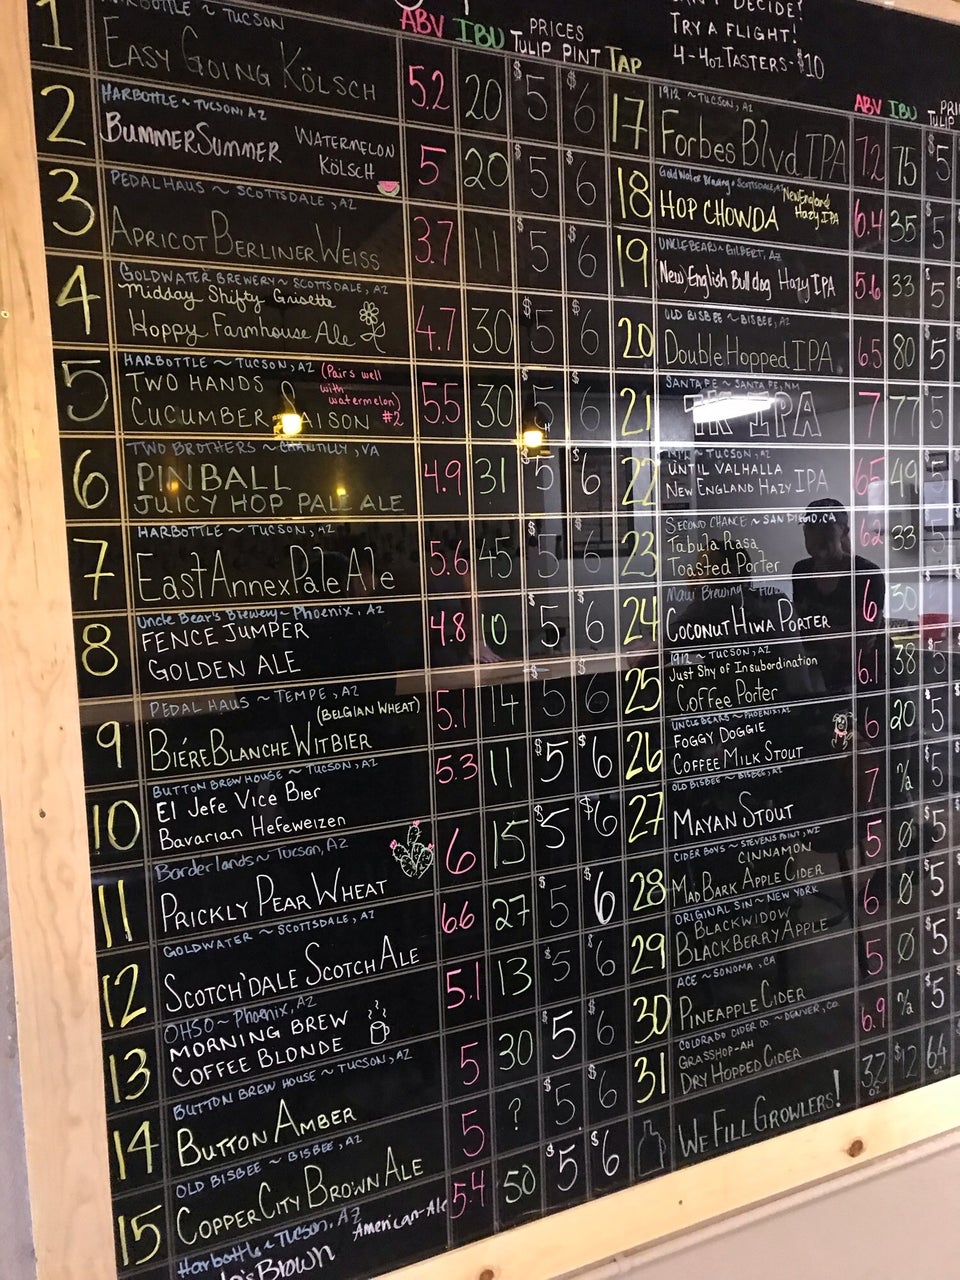 ABV IBU PRICES
TULIP PINT TAP
DECIDE!
TRY A FLIGHT!
4-4oz TASTERS-$10
1 HARBOTTLE ~ TUCSON
EASY GOING KÖLSCH 5.2 20 $5 $6
2 HARBOTTLE ~ TUCSON, AZ
BUMMER SUMMER WATERMELON KÖLSCH 5 20 $5 $6
3 PEDAL HAUS ~ SCOTTSDALE, AZ
APRICOT BERLINER WEISS 3.7 11 $5 $6
4 GOLDWATER BREWERY ~ SCOTTSDALE, AZ
Midday Shifty Grisette
Hoppy Farmhouse Ale 4.7 30 $5 $6
5 HARBOTTLE ~ TUCSON, AZ (Pairs well with watermelon) #2
TWO HANDS
CUCUMBER SAISON 5.5 30 $5 $6
6 TWO BROTHERS ~ CHANTILLY, VA
PINBALL
JUICY HOP PALE ALE 4.9 31 $5 $6
7 HARBOTTLE ~ TUCSON, AZ
East Annex Pale Ale 5.6 45 $5 $6
8 Uncle Bear's Brewery ~ Phoenix, AZ
FENCE JUMPER
GOLDEN ALE 4.8 10 $5 $6
9 PEDAL HAUS ~ TEMPE, AZ
(BELGIAN WHEAT)
BIÉRE BLANCHE WITBIER 5.1 14 $5 $6
10 BUTTON BREW HOUSE ~ TUCSON, AZ
El Jefe Vice Bier
Bavarian Hefeweizen 5.3 11 $5 $6
11 Borderlands ~ Tucson, AZ
PRICKLY PEAR WHEAT 6 15 $5 $6
12 GOLDWATER ~ SCOTTSDALE, AZ
SCOTCH'DALE SCOTCH ALE 6.6 27 $5 $6
13 OHSO ~ Phoenix, AZ
MORNING BREW
COFFEE BLONDE 5.1 13 $5 $6
14 BUTTON BREW HOUSE ~ TUCSON, AZ
BUTTON AMBER 5 30 $5 $6
15 OLD BISBEE ~ BISBEE, AZ
COPPER CITY BROWN ALE 5 ? $5 $6
Harbottle ~ Tucson, AZ
Brown American Ale 5.4 50 $5 $6
ABV IBU
TULIP
17 1912 ~ TUCSON, AZ
Forbes Blvd IPA 7.2 75 $5
18 Gold Water Brewing ~ SCOTTSDALE, AZ
HOP CHOWDA New England Hazy IPA 6.4 35 $5
19 UNCLE BEARS ~ GILBERT, AZ
New English Bulldog Hazy IPA 5.6 33 $5
20 OLD BISBEE ~ BISBEE, AZ
Double Hopped IPA 6.5 80 $5
21 SANTA FE ~ SANTA FE, NM
IPA 7 77 $5
22 TUCSON, AZ
UNTIL VALHALLA
NEW ENGLAND HAZY IPA 6.5 49 5
23 SECOND CHANCE ~ SAN DIEGO, CA
Tabula Rasa
Toasted Porter 6.2 33 5
24 Maui Brewing
COCONUT HIWA PORTER 6 30 5
25 1912 ~ TUCSON, AZ
Just Shy of Insubordination
Coffee Porter 6.1 38 5
26 UNCLE BEARS ~ PHOENIX AZ
FOGGY DOGGIE
COFFEE MILK STOUT 6 20 $5
27 OLD BISBEE ~ BISBEE, AZ
MAYAN STOUT 7 n/a $5
28 CIDER BOYS ~ STEVENS POINT, WI
CINNAMON
MAD BARK APPLE CIDER 5 Ø $5
29 ORIGINAL SIN ~ NEW YORK
BLACKWIDOW
BLACKBERRY APPLE 6 Ø $5
30 ACE ~ SONOMA, CA
PINEAPPLE CIDER 5 Ø $5
31 COLORADO CIDER CO. ~ DENVER, CO.
GRASSHOP-AH
DRY HOPPED CIDER 6.9 n/a $5
WE FILL GROWLERS! 32 oz $12 64 oz